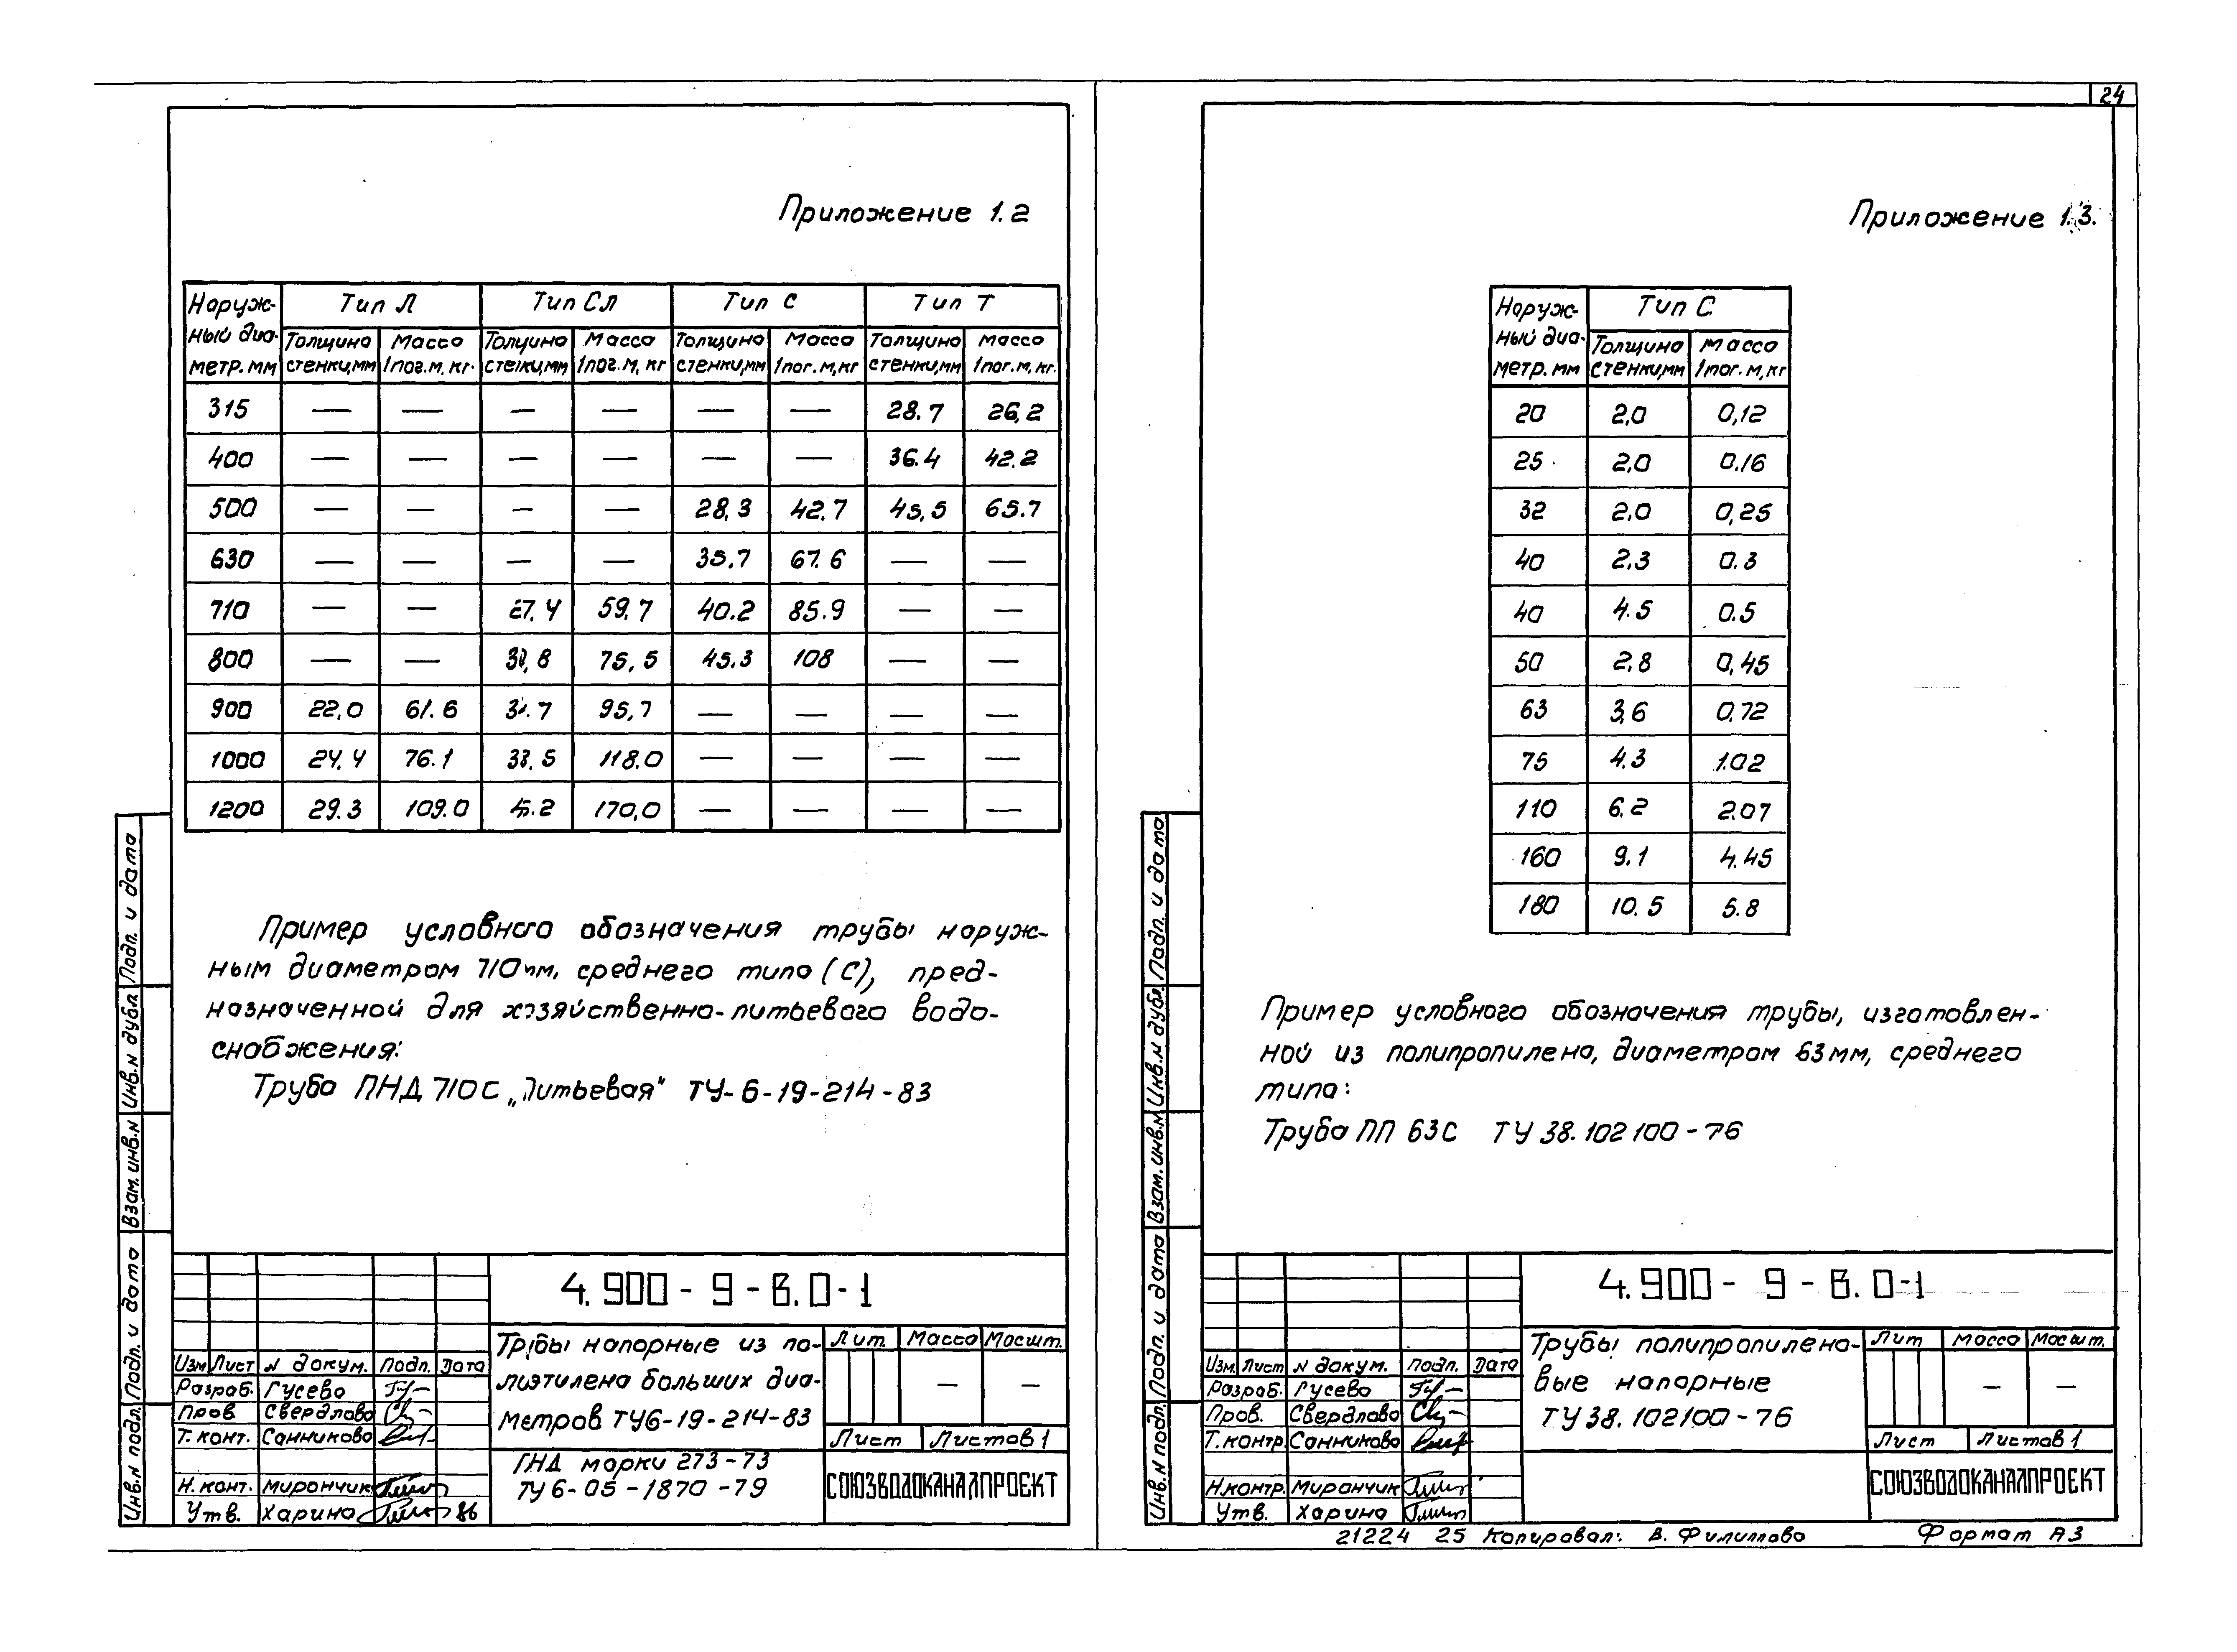 24
Приложение 1.2
Наруж-ный диа-метр. мм | Тип Л | Тип СЛ | Тип С | Тип Т
Толщина стенки,мм | Масса 1пог.м, кг. | Толщина стенки,мм | Масса 1пог.м, кг | Толщина стенки,мм | Масса 1пог.м,кг | Толщина стенки,мм | Масса 1пог.м,кг.
315 — — — — — — 28.7 26,2
400 — — — — — — 36.4 42.2
500 — — — — 28,3 42.7 45,5 65.7
630 — — — — 35.7 67.6 — —
710 — — 27,4 59,7 40.2 85.9 — —
800 — — 30,8 75,5 45.3 108 — —
900 22,0 61.6 34.7 95,7 — — — —
1000 24,4 76.1 38,5 118.0 — — — —
1200 29.3 109.0 170,0 — — — —
Пример условного обозначения трубы наруж-
ным диаметром 710мм, среднего типа (С), пред-
назначенной для хозяйственно-питьевого водо-
снабжения:
Труба ПНД 710С „Питьевая" ТУ-6-19-214-83
Подп. и дата
Инв.N дубл
Взам.инв.N
Подп. и дата
Инв.N подл.
4.900-9-В.0-1
Изм Лист N докум. Подп. Дата
Разраб. Гусева
Пров Свердлова
Т.конт. Санникова
Н.конт. Мирончик
Утв. Харина 86
Трубы напорные из по-
лиэтилена больших диа-
метров ТУ6-19-214-83
ПНД марки 273-73
ТУ6-05-1870-79
Лит. Масса Масшт.
— —
Лист Листов 1
СОЮЗВОДОКАНАЛПРОЕКТ
Приложение 1.3.
Наруж-ный диа-метр. мм | Тип С
Толщина стенки,мм | Масса 1пог.м,кг
20 2,0 0,12
25 2,0 0.16
32 2,0 0,25
40 2.3 0.3
40 4.5 0.5
50 2.8 0,45
63 3,6 0.72
75 4.3 1.02
110 6.2 2.07
160 9.1 4.45
180 10.5 5.8
Пример условного обозначения трубы, изготовлен-
ной из полипропилена, диаметром 63мм, среднего
типа:
Труба ПП 63С ТУ 38.102100-76
Подп. и дата
Инв.N дубл.
Взам.инв.N
Подп. и дата
Инв.N подл.
4.900-9-В.0-1
Изм. Лист N докум. Подп. Дата
Разраб. Гусева
Пров. Свердлова
Т.контр. Санникова
Н.контр. Мирончик
Утв. Харина
Трубы полипропилено-
вые напорные
ТУ38.102100-76
Лит Масса Масшт.
— —
Лист Листов 1
СОЮЗВОДОКАНАЛПРОЕКТ
21224 25 Копировал: В. Филиппова Формат А3